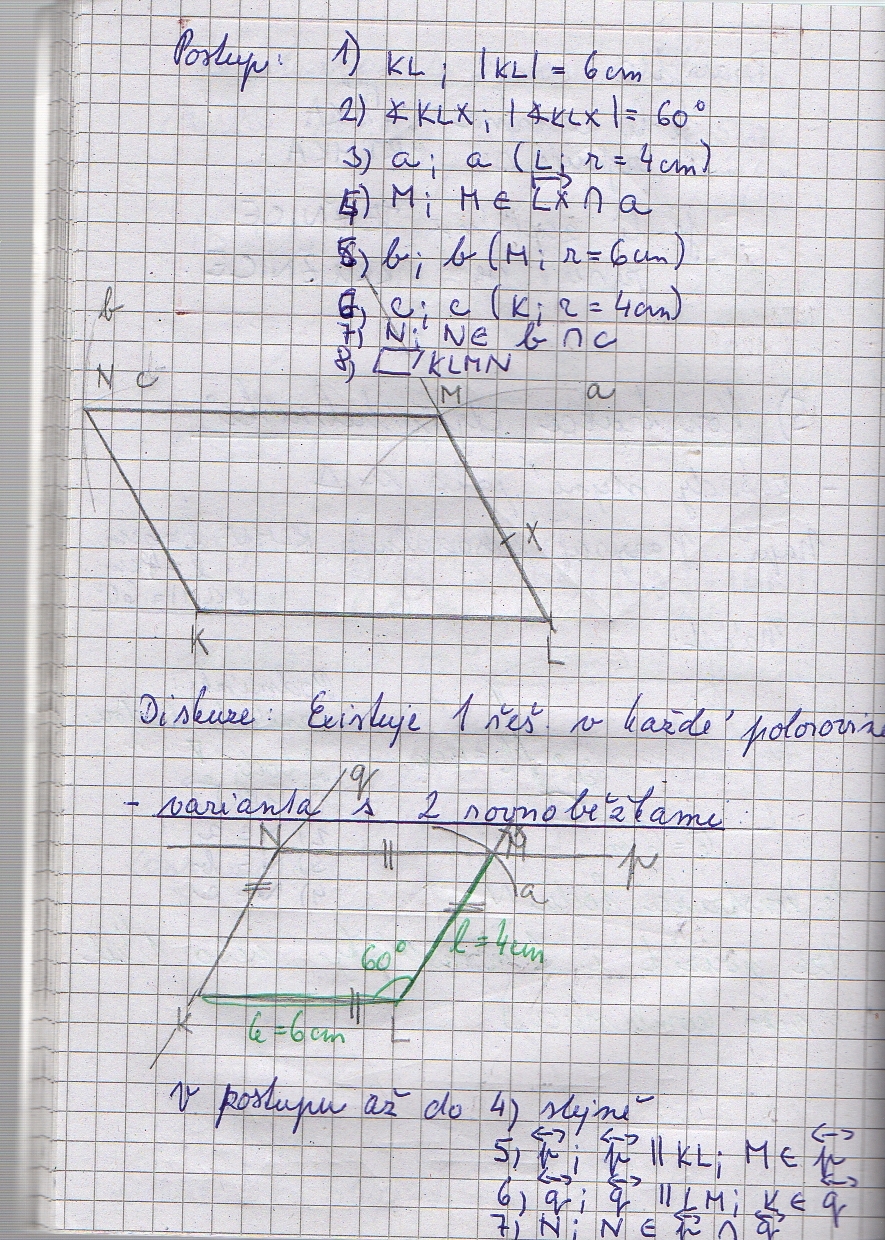 Postup: 1) KL; |KL| = 6cm
2) ∢KLX; |∢KLX| = 60°
3) a; a (L; r = 4cm)
4) M; M ∈ LX ∩ a
5) b; b (M; r = 6cm)
6) c; c (K; r = 4cm)
7) N; N ∈ b ∩ c
8) ▱ KLMN
b
N c
M
a
X
K
L
Diskuze: Existuje 1 řeš. v každé polorovině
- varianta s 2 rovnoběžkami
q
N
M
p
a
60°
l = 4cm
K
k = 6cm
L
V postupu až do 4) stejně
5) p; p || KL; M ∈ p
6) q; q || LM; K ∈ q
7) N; N ∈ p ∩ q